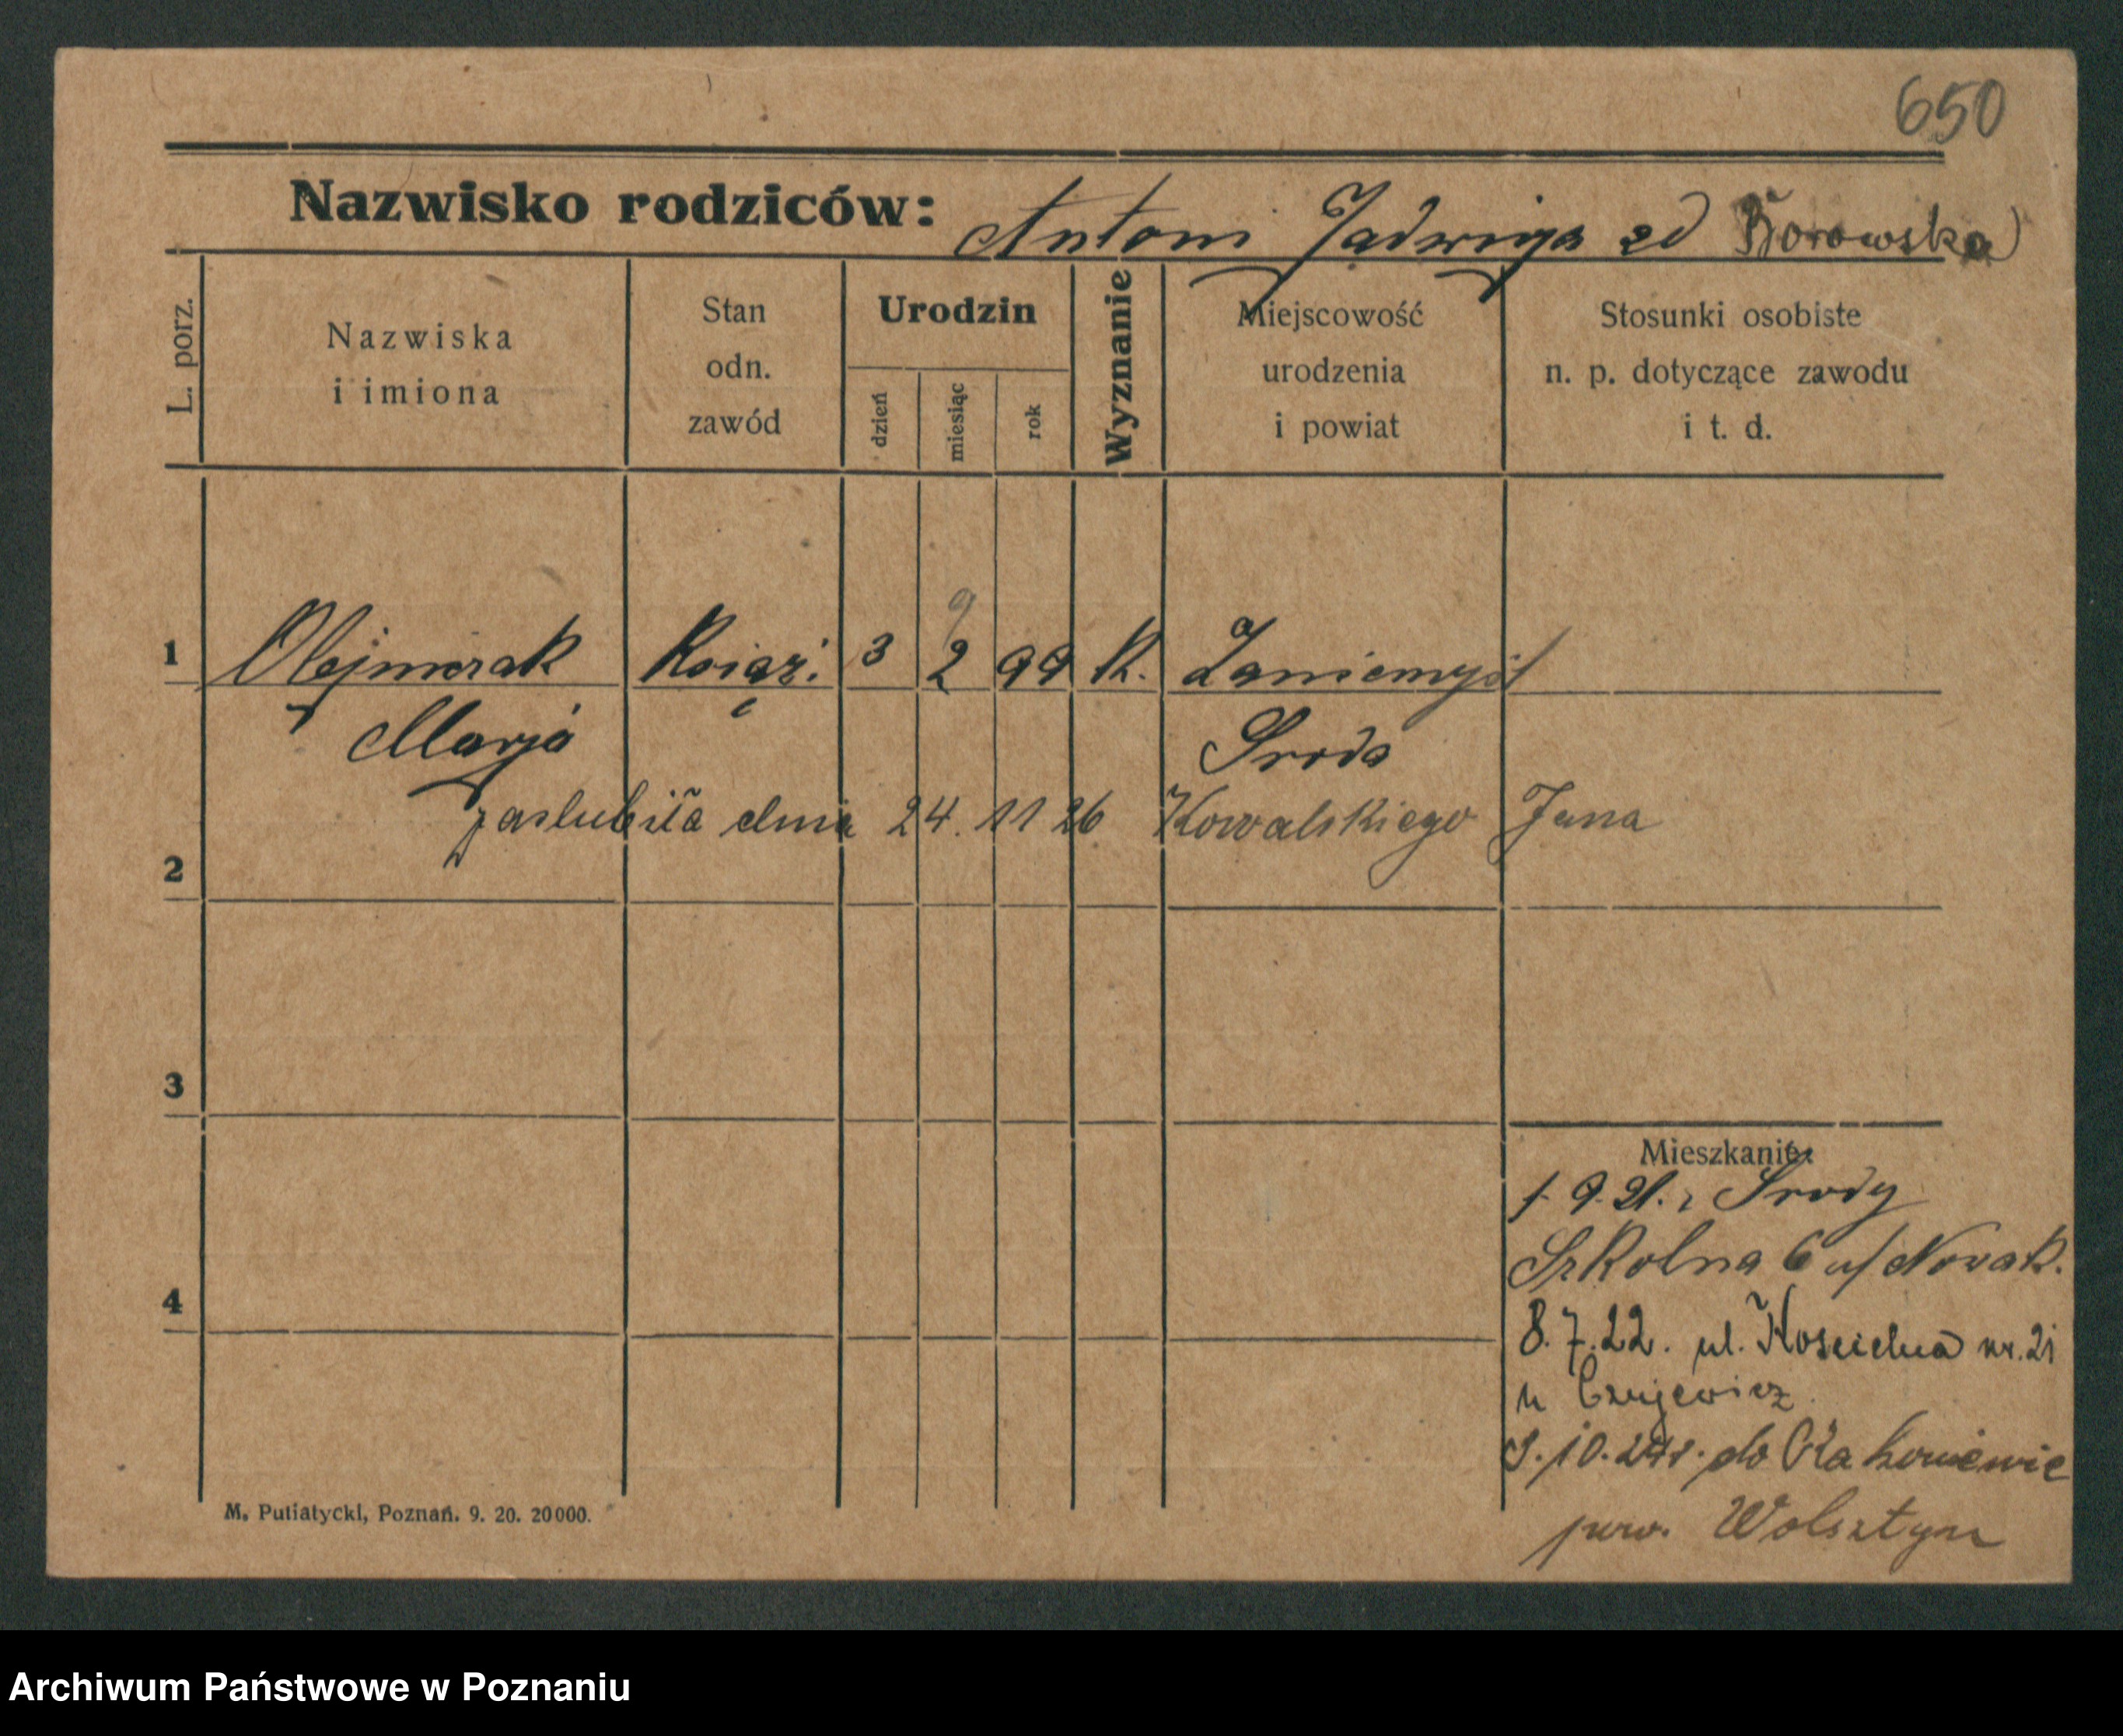 650
Nazwisko rodziców: Antoni Jadwiga zd Borowska
L. porz.
Nazwiska
i imiona
Stan
odn.
zawód
Urodzin
dzień
miesiąc
rok
Wyznanie
Miejscowość
urodzenia
i powiat
Stosunki osobiste
n. p. dotyczące zawodu
i t. d.
9
1 Olejniczak 3 2 99 K. Zaniemyśl
Marja Środa
zaslubiła dnia 24. 11 26 Kowalskiego Jana
2
3
Mieszkanie:
1. 9. 21. z Środy
Szkolna 6 u/ Nowak.
4
8. 7. 22. ul. Kościelna nr. 21
u
10. do Rakoniewic
pow. Wolsztyn
M. Putiatycki, Poznań. 9. 20. 20000.
Archiwum Państwowe w Poznaniu